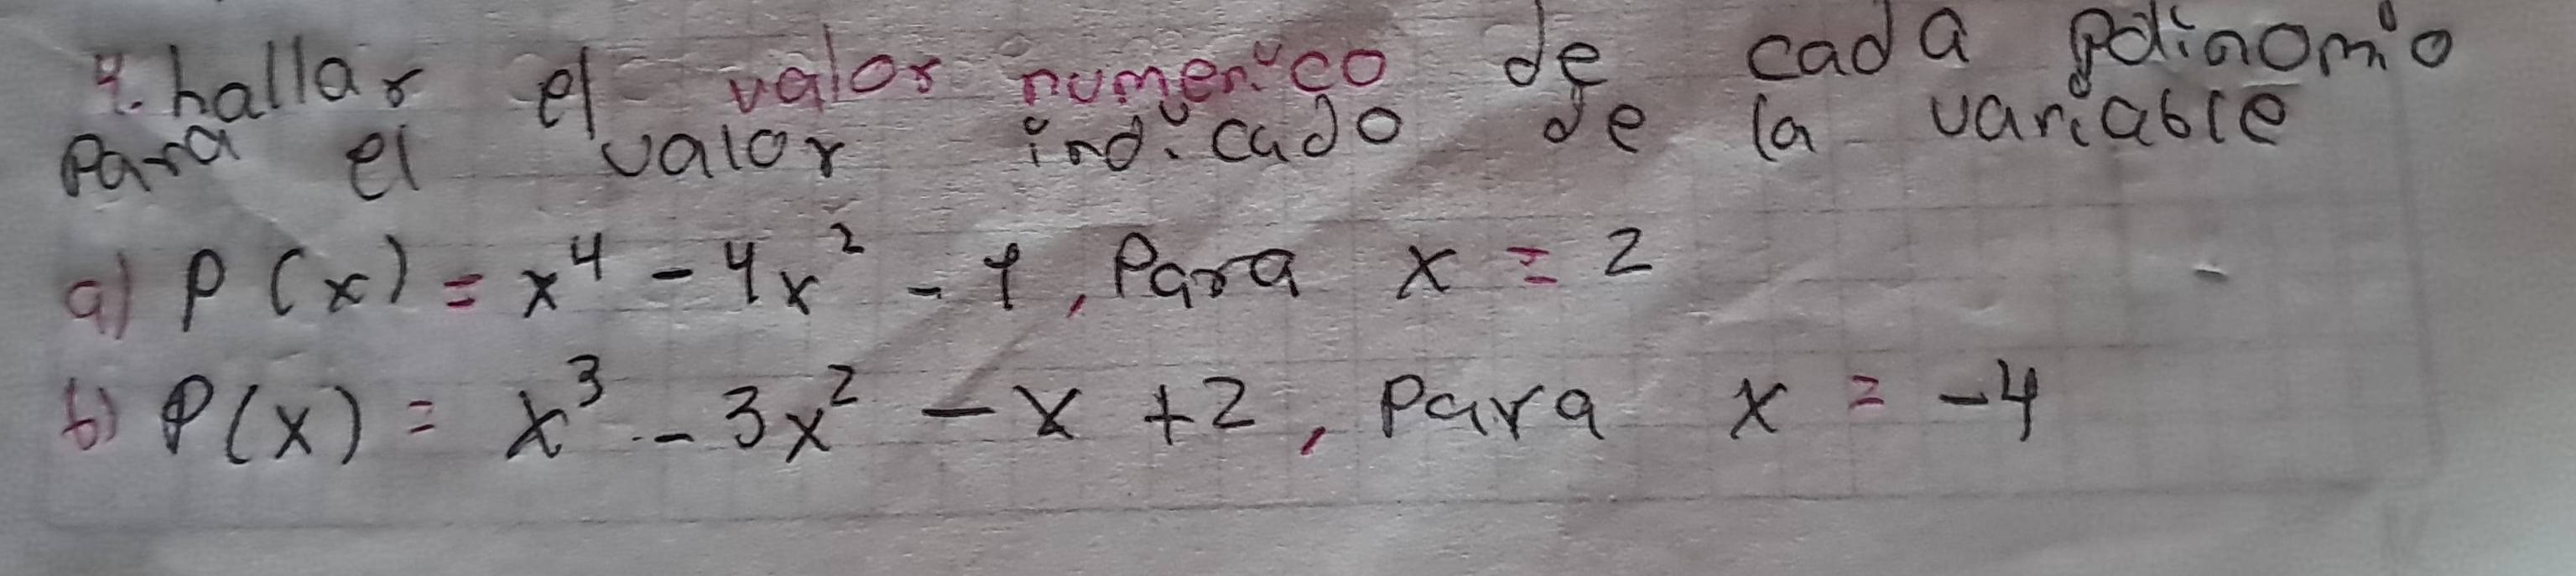 4. hallar el valor numerico de cada polinomio
Para el valor indicado de la variable
a) P(x) = x⁴ - 4x² - 1, Para x = 2
b) P(x) = x³ - 3x² - x + 2, Para x = -4